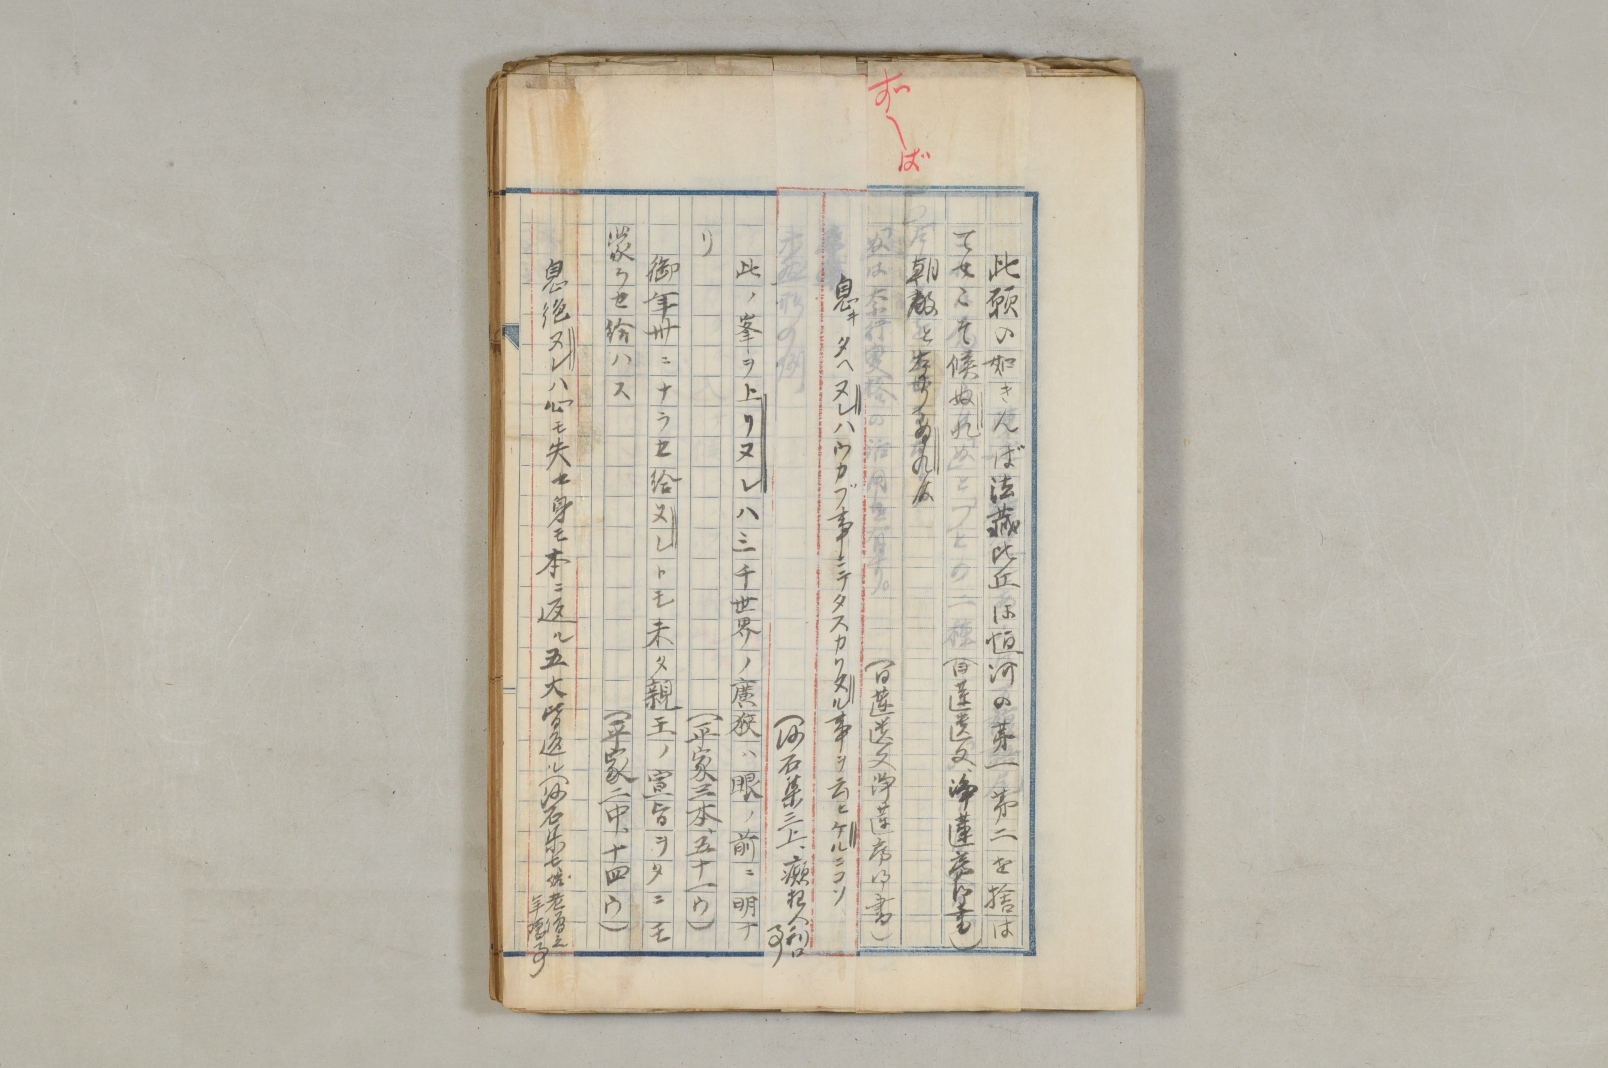 此願の如きんば法蔵比丘は恒河の第一第二を捨は
てせこそ候ぬれ(日蓮遺文、浄蓮房御書)
朝敵と
(日蓮遺文浄蓮房御書)
息キタヘヌレハウカブ事ニテタスカリタル事ヲ云ヒケルニコソ
(沙石集三上、癲狂人利口事)
此ノ峯ヲ上リヌレハ三千世界ノ廣狹ハ眼ノ前ニ明ナ
リ(平家三本、五十一ウ)
御年卅ニナラセ給ヌレトモ未タ親王ノ宣旨ヲタニモ
蒙ラセ給ハス(平家二中、十四ウ)
息絶ヌレハ心モ失セ身モ本ニ返ル五大皆返ル(沙石集七